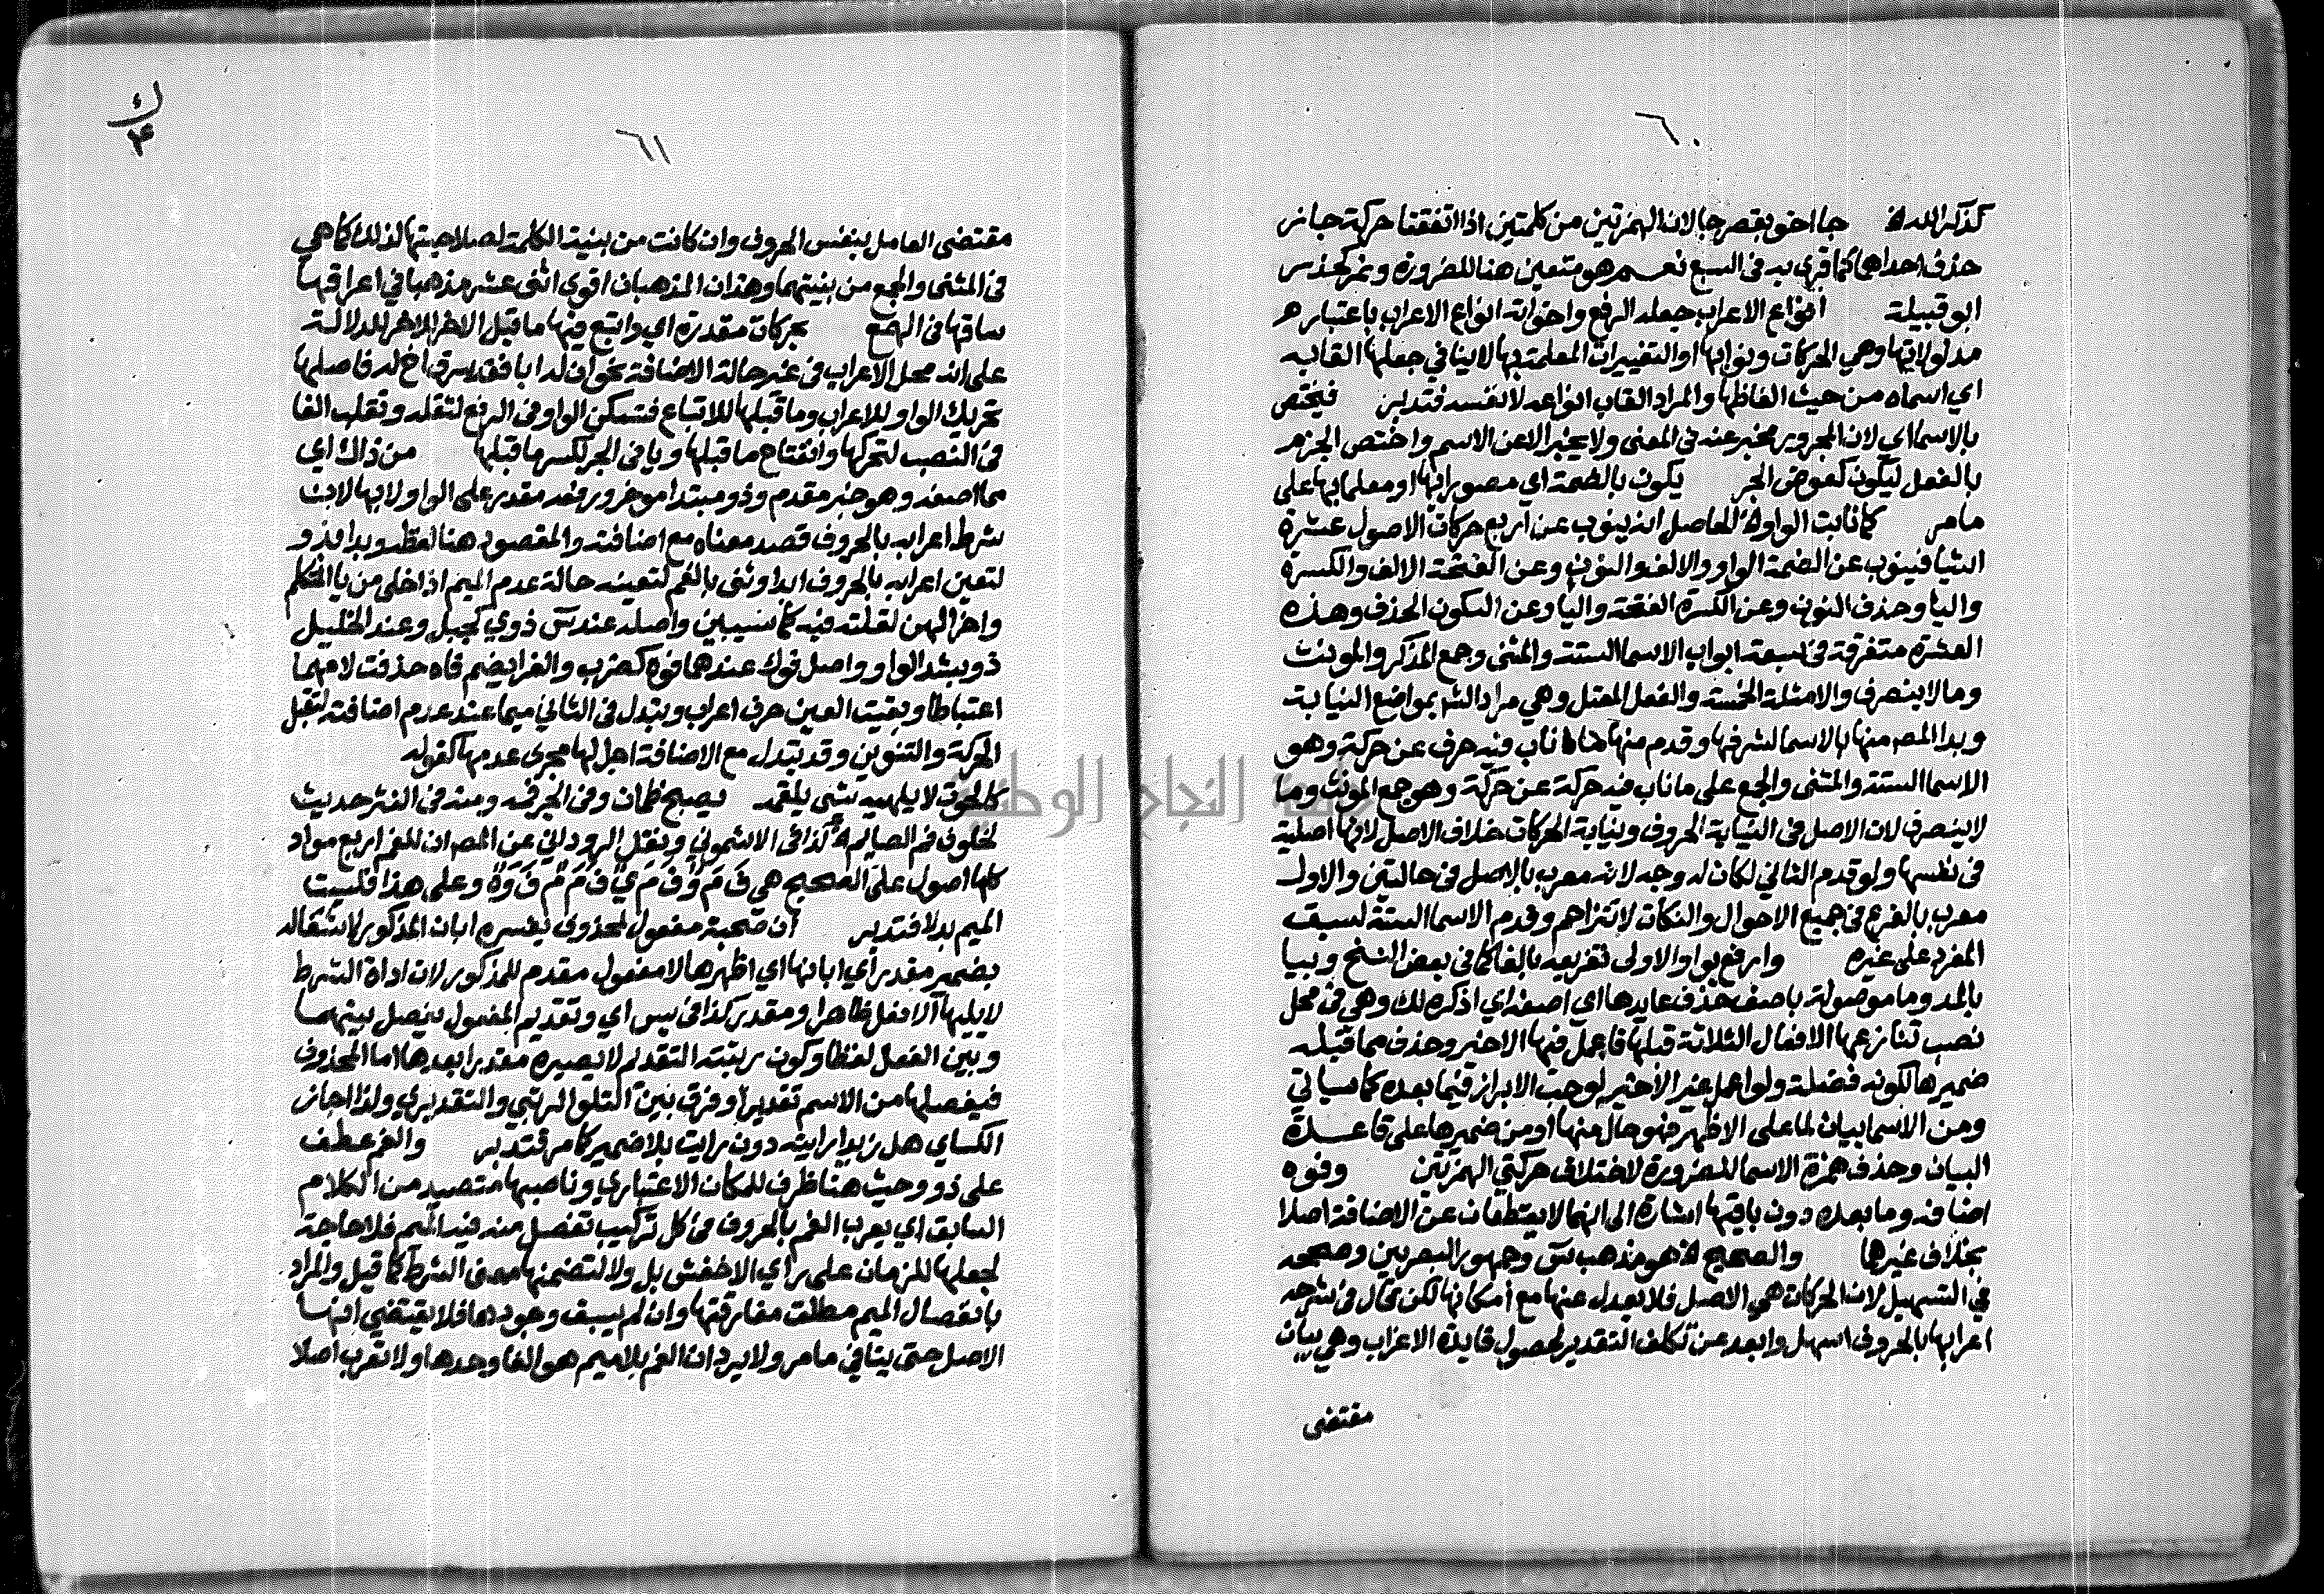 ٦٠
كذكر الله جا اخو بقصر جا لان الهمزتين من كلمتين اذا اتفقتا حركة جاز
حذف احداهما كما قرى به في السبع نعم هو متعين هنا للضرورة ونمر كحذر
ابو قبيلة انواع الاعراب جعله الرفع واخواته انواع الاعراب باعتبار
مدلولاتها وهي الحركات ونوابها او التغييرات المعلمة بها لا ينافي جعلها القابه
اي اسماه من حيث الفاظها والمراد القاب انواعه لا نفسه فتدبر فيختص
بالاسما اي لان المجرور مخبر عنه في المعنى ولا يخبر الا عن الاسم واختص الجزم
بالفعل ليكون كعوض الجر يكون بالضمة اي مصورا بها او معلما بها على
مامر كما نابت الواو الحاصل انه ينوب عن اربع حركات الاصول عشرة
اشيا فينوب عن الضمة الواو والالف والنون وعن الفتحة الالف والكسرة
واليا وحذف النون وعن الكسرة الفتحة واليا وعن السكون الحذف وهذه
العشرة متفرقة في سبعة ابواب الاسما الستة والمثنى وجمع المذكر والمونث
وما لا ينصرف والامثلة الخمسة والفعل المعتل وهي مراد الش بمواضع النيابة
وبدا المص منها بالاسما لشرفها وقدم منها ما ناب فيه حرف عن حركة وهو
الاسما الستة والمثنى والجمع على ما ناب فيه حركة عن حركة وهو جمع المونث وما
لا ينصرف لان الاصل في النيابة الحروف ونيابة الحركات خلاف الاصل لانها اصلية
في نفسها ولو قدم الثاني لكان له وجه لانه معرب بالاصل في حالتين والاول
معرب بالفرع في جميع الاحوال والنكات لا تتزاحم وقدم الاسما الستة لسبق
المفرد على غيره وارفع بواو الاولى تفريعه بالفا كما في بعض النسخ وبيا
بالمد وما موصولة باصف حذف عايدها اي اصفه اي اذكره لك وهي في محل
نصب تنازعها الافعال الثلاثة قبلها فاعمل فيها الاخير وحذف مما قبله
ضميرها لكونه فضلة ولو اعمل غير الاخير لوجب الابراز فيما بعده كما سياتي
ومن الاسما بيان لما على الاظهر فهو حال منها او من ضميرها على قاعدة
البيان وحذف همزة الاسما للضرورة لاختلاف حركتي الهمزتين وفوه
اضافه وما بعده دون باقيها اشارة الى انهما لا يقطعان عن الاضافة اصلا
بخلاف غيرهما والصحيح هو مذهب س وجمهور البصريين وصححه
في التسهيل لان الحركات هي الاصل فلا يعدل عنها مع امكانها لكن قال في شرحه
اعرابها بالحروف اسهل وابعد عن تكلف التقدير لحصول فايدة الاعراب وهي بيان
مقتضى
٦١
ك
٤
مقتضى العامل بنفس الحروف وان كانت من بنية الكلمة لصلاحيتها لذلك كما هي
في المثنى والجمع من بنيتهما وهذان المذهبان اقوى اثنى عشر مذهبا في اعرابها
ساقها في الهمع بحركات مقدرة اي واتبع فيها ما قبل الاخر للاخر للدلالة
على انه محل الاعراب في غير حالة الاضافة نحو ان له ابا فقد سرق اخ له فاصلها
تحريك الواو للاعراب وما قبلها للاتباع فتسكن الواو في الرفع لثقله وتقلب الفا
في النصب لتحركها وانفتاح ما قبلها ويا في الجر لكسر ما قبلها من ذاك اي
مما اصفه وهو خبر مقدم وذو مبتدا موخر ورفعه مقدر على الواو لا بها لان
شرط اعرابه بالحروف قصد معناه مع اضافته والمقصود هنا لفظه وبدا بذو
لتعين اعرابه بالحروف ابدا وثنى بالفم لتعينه حالة عدم الميم اذا خلى من يا المتكلم
واخر الهن لقلته فيه كما سيبين واصله عند س ذوي كجبل وعند الخليل
ذو بشد الواو واصل فوك عندهما فوه كضرب والفرا بضم فاه حذفت لامهما
اعتباطا وبقيت العين حرف اعراب وتبدل في الثاني ميما عند عدم اضافته لتقبل
الحركة والتنوين وقد تبدل مع الاضافة اجرا لها مجرى عدمها كقوله
كالحوت لا يلهيه شي يلقمه يصبح ظمان وفي البحر فمه ومنه في النثر حديث
لخلوف فم الصايم كذا في الاشموني ونقل الروداني عن المص ان للفم اربع مواد
كلها اصول على الصحيح هي ف م و ف م ي ف م م ف و ه وعلى هذا فليست
الميم بدلا فتدبر ان صحبة مفعول لمحذوف يفسره ابان المذكور لاشتغاله
بضمير مقدر اي ابانها اي اظهرها لا مفعول مقدم للمذكور لان اداة الشرط
لا يليها الا فعل ظاهرا ومقدر كذا في يس اي وتقديم المفعول يفصل بينهما
وبين الفعل لفظا وكون رتبته التقديم لا يصيره مقدرا بعدها اما المحذوف
فيفصلها من الاسم تقديرا وفرق بين التلو الرتبي والتقديري ولذا اجاز
الكساي هل زيدا رايته دون رايت بلا ضمير كما مر فتدبر والفم عطف
على ذو وحيث هنا ظرف للمكان الاعتباري وناصبها متصيد من الكلام
السابق اي يعرب الفم بالحروف في كل تركيب تفصل منه فيه الميم فلا حاجة
لجعلها للزمان على راي الاخفش بل ولا لتضمنها معنى الشرط كما قيل والمراد
بانفصال الميم مطلق مفارقتها وان لم يسبق وجودها فلا يقتضي انها
الاصل حتى ينافي مامر ولا يرد ان الفم بلا ميم هو الفا وحدها ولا تعرب اصلا